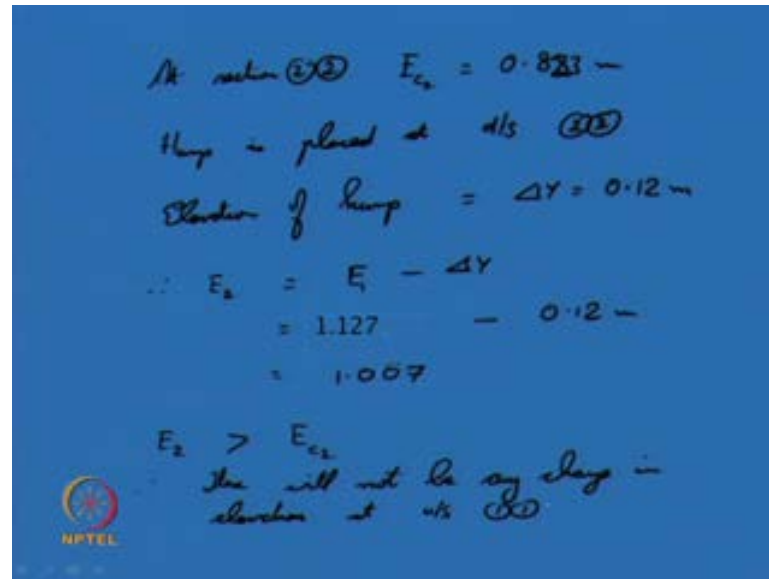 At section ②② E_c₂ = 0.883 m
Hump is placed at d/s ②②
Elevation of hump = ΔY = 0.12 m
∴ E₂ = E₁ - ΔY
= 1.127 - 0.12 m
= 1.007
E₂ > E_c₂
∴ There will not be any change in
elevation at u/s ①①
NPTEL